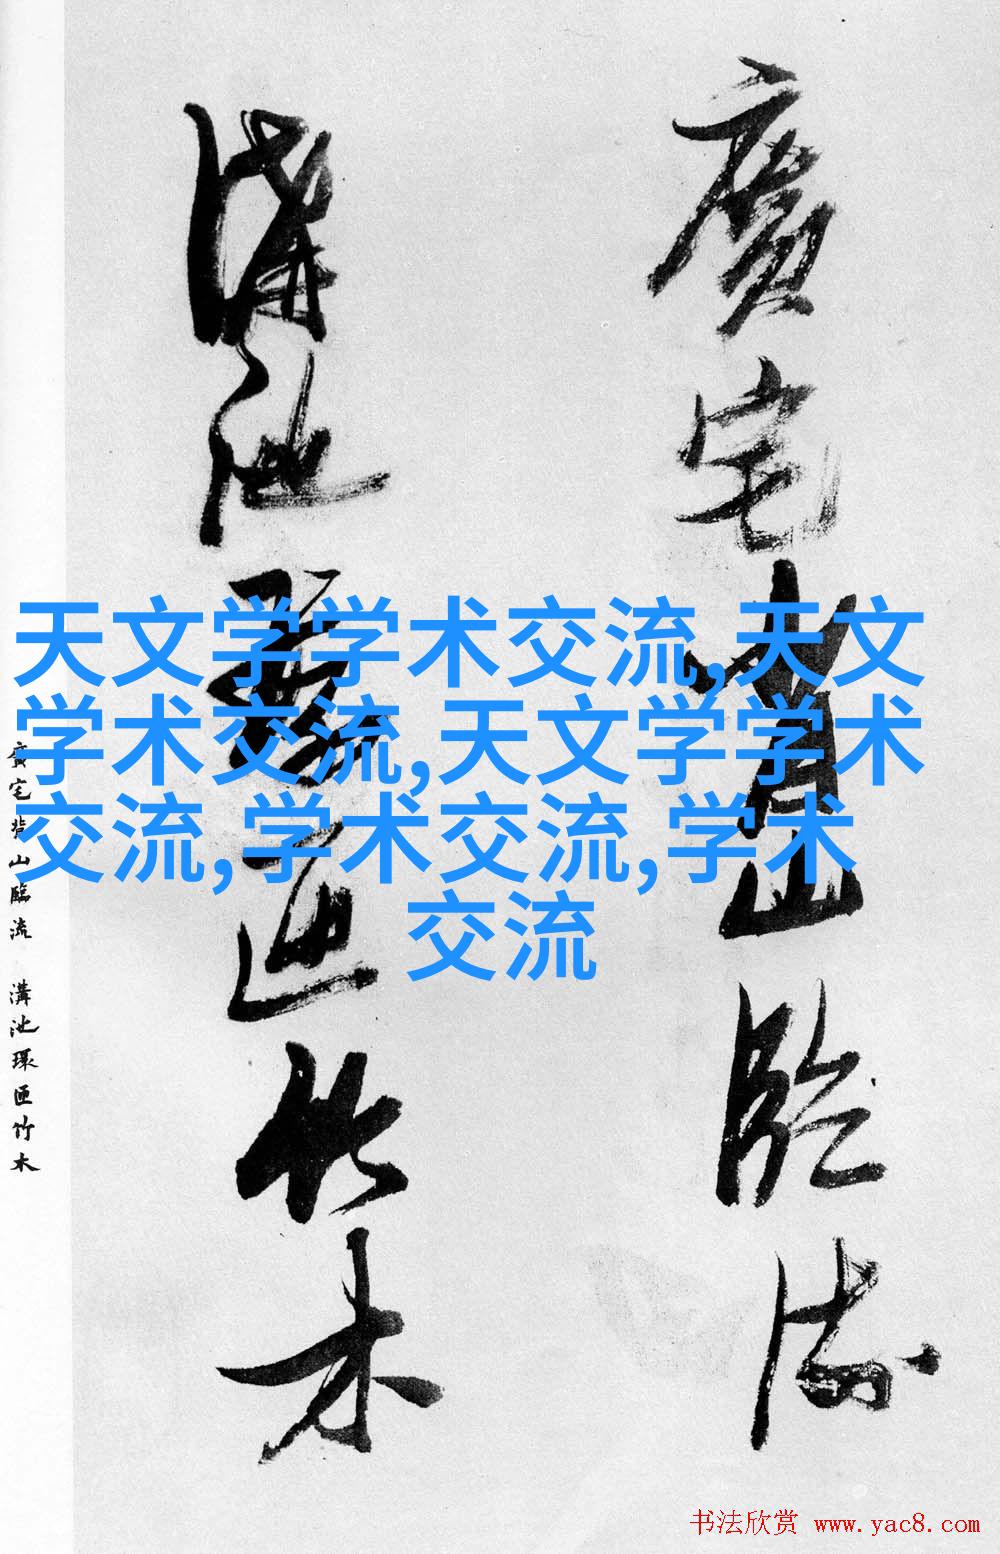 廣宅背山臨流
溝池環匝竹木
天文学学术交流,天文
学术交流,天文学学术
交流,学术交流,学术
交流
廣宅背山臨流 溝池環匝竹木
书法欣赏 www.yac8.com